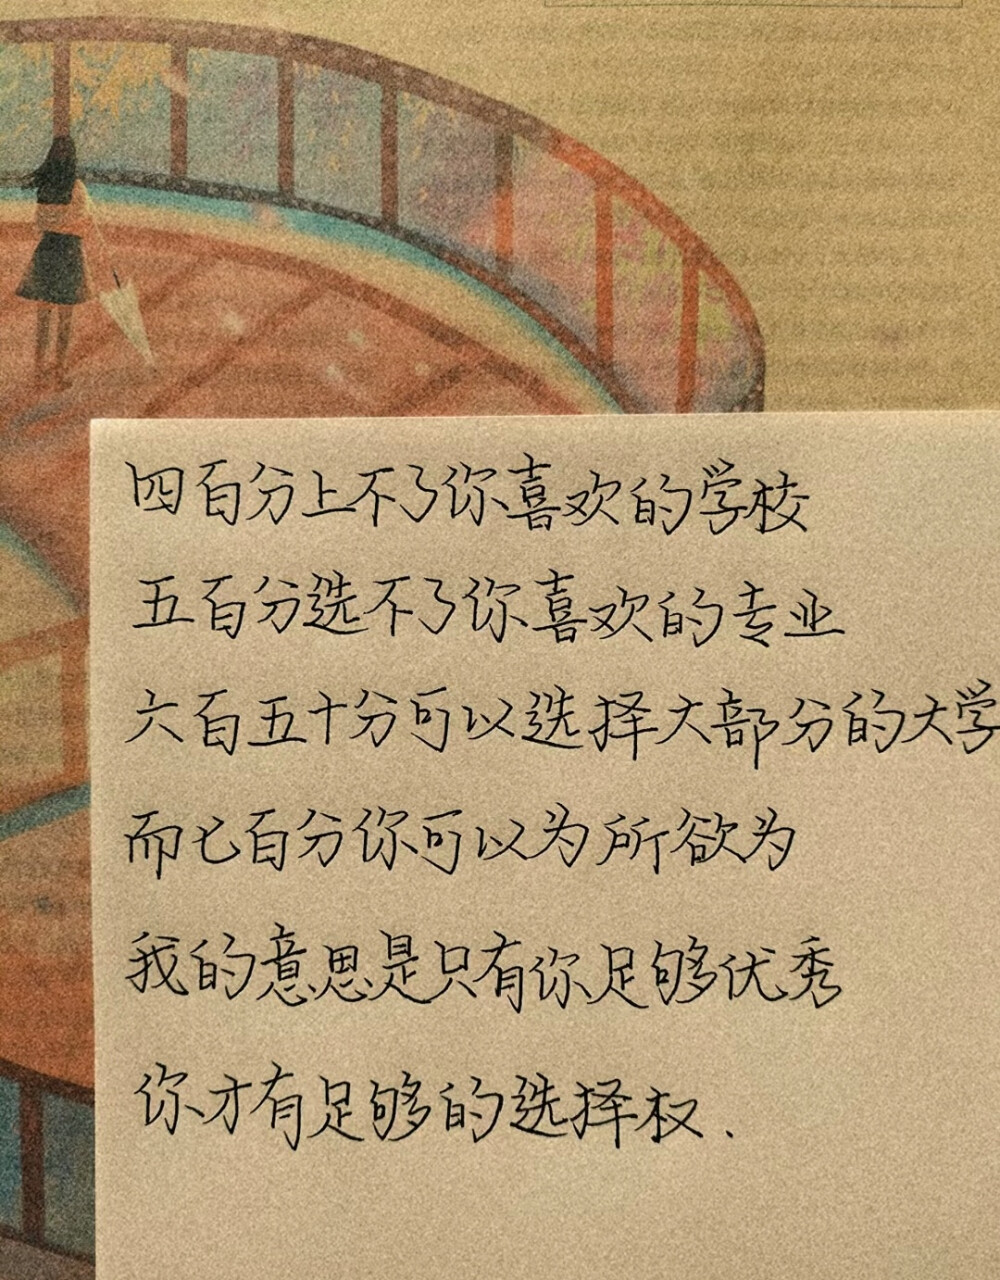 四百分上不了你喜欢的学校
五百分选不了你喜欢的专业
六百五十分可以选择大部分的大学
而七百分你可以为所欲为
我的意思是只有你足够优秀
你才有足够的选择权.